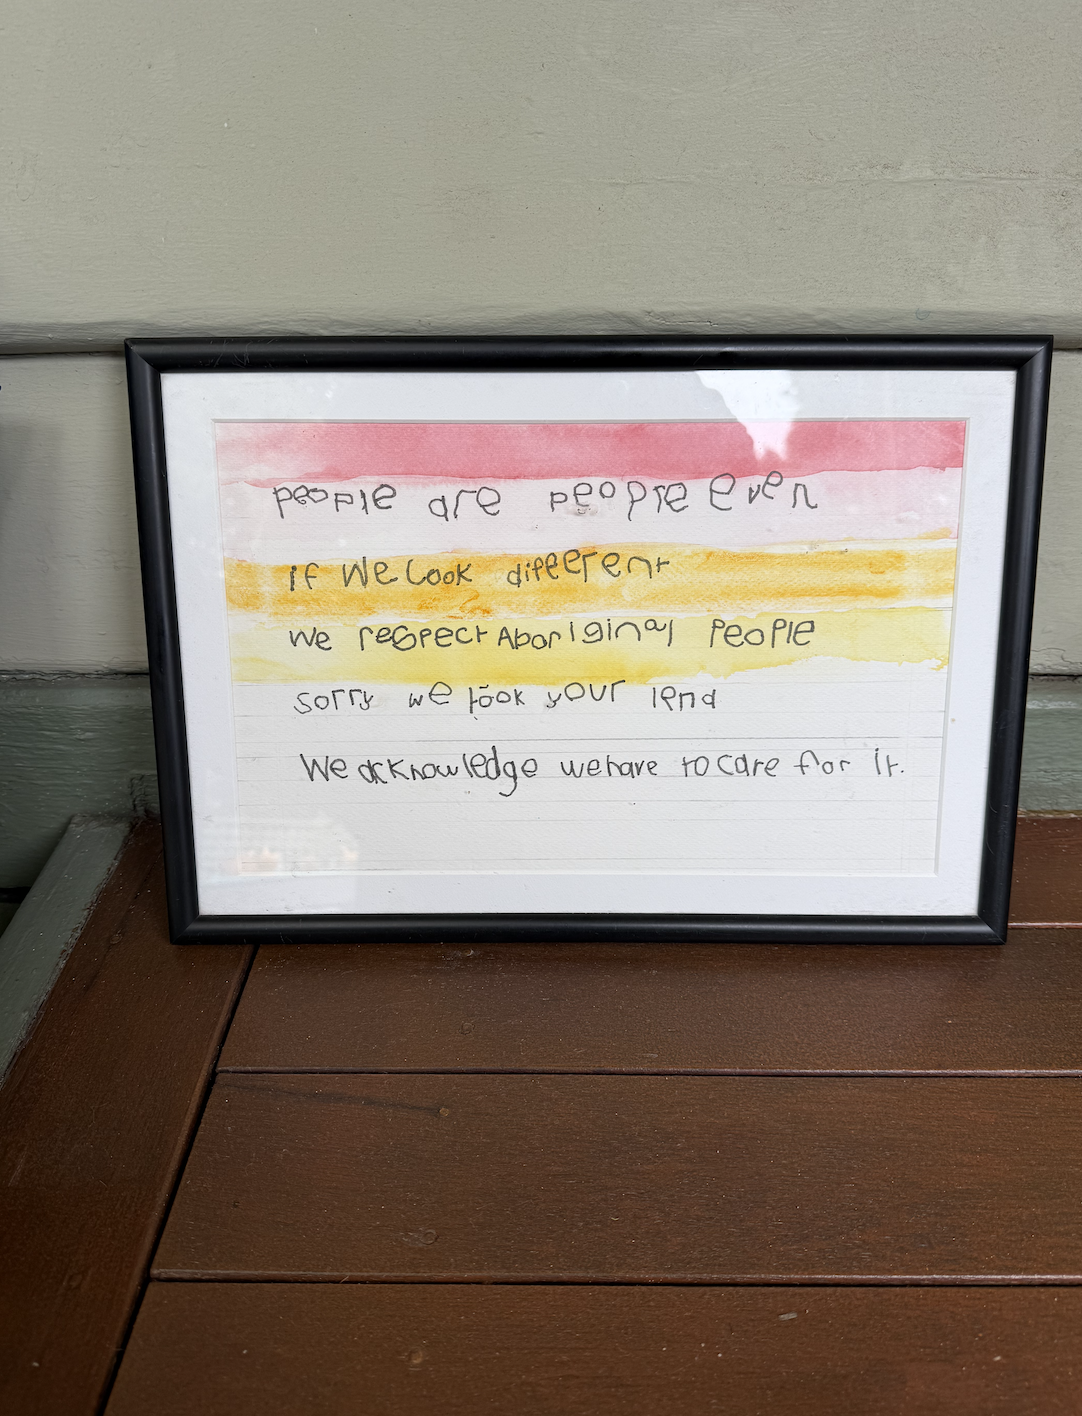 people are people even
if we look different
we respect Aboriginal people
sorry we took your lend
We acknowledge we have to care for it.